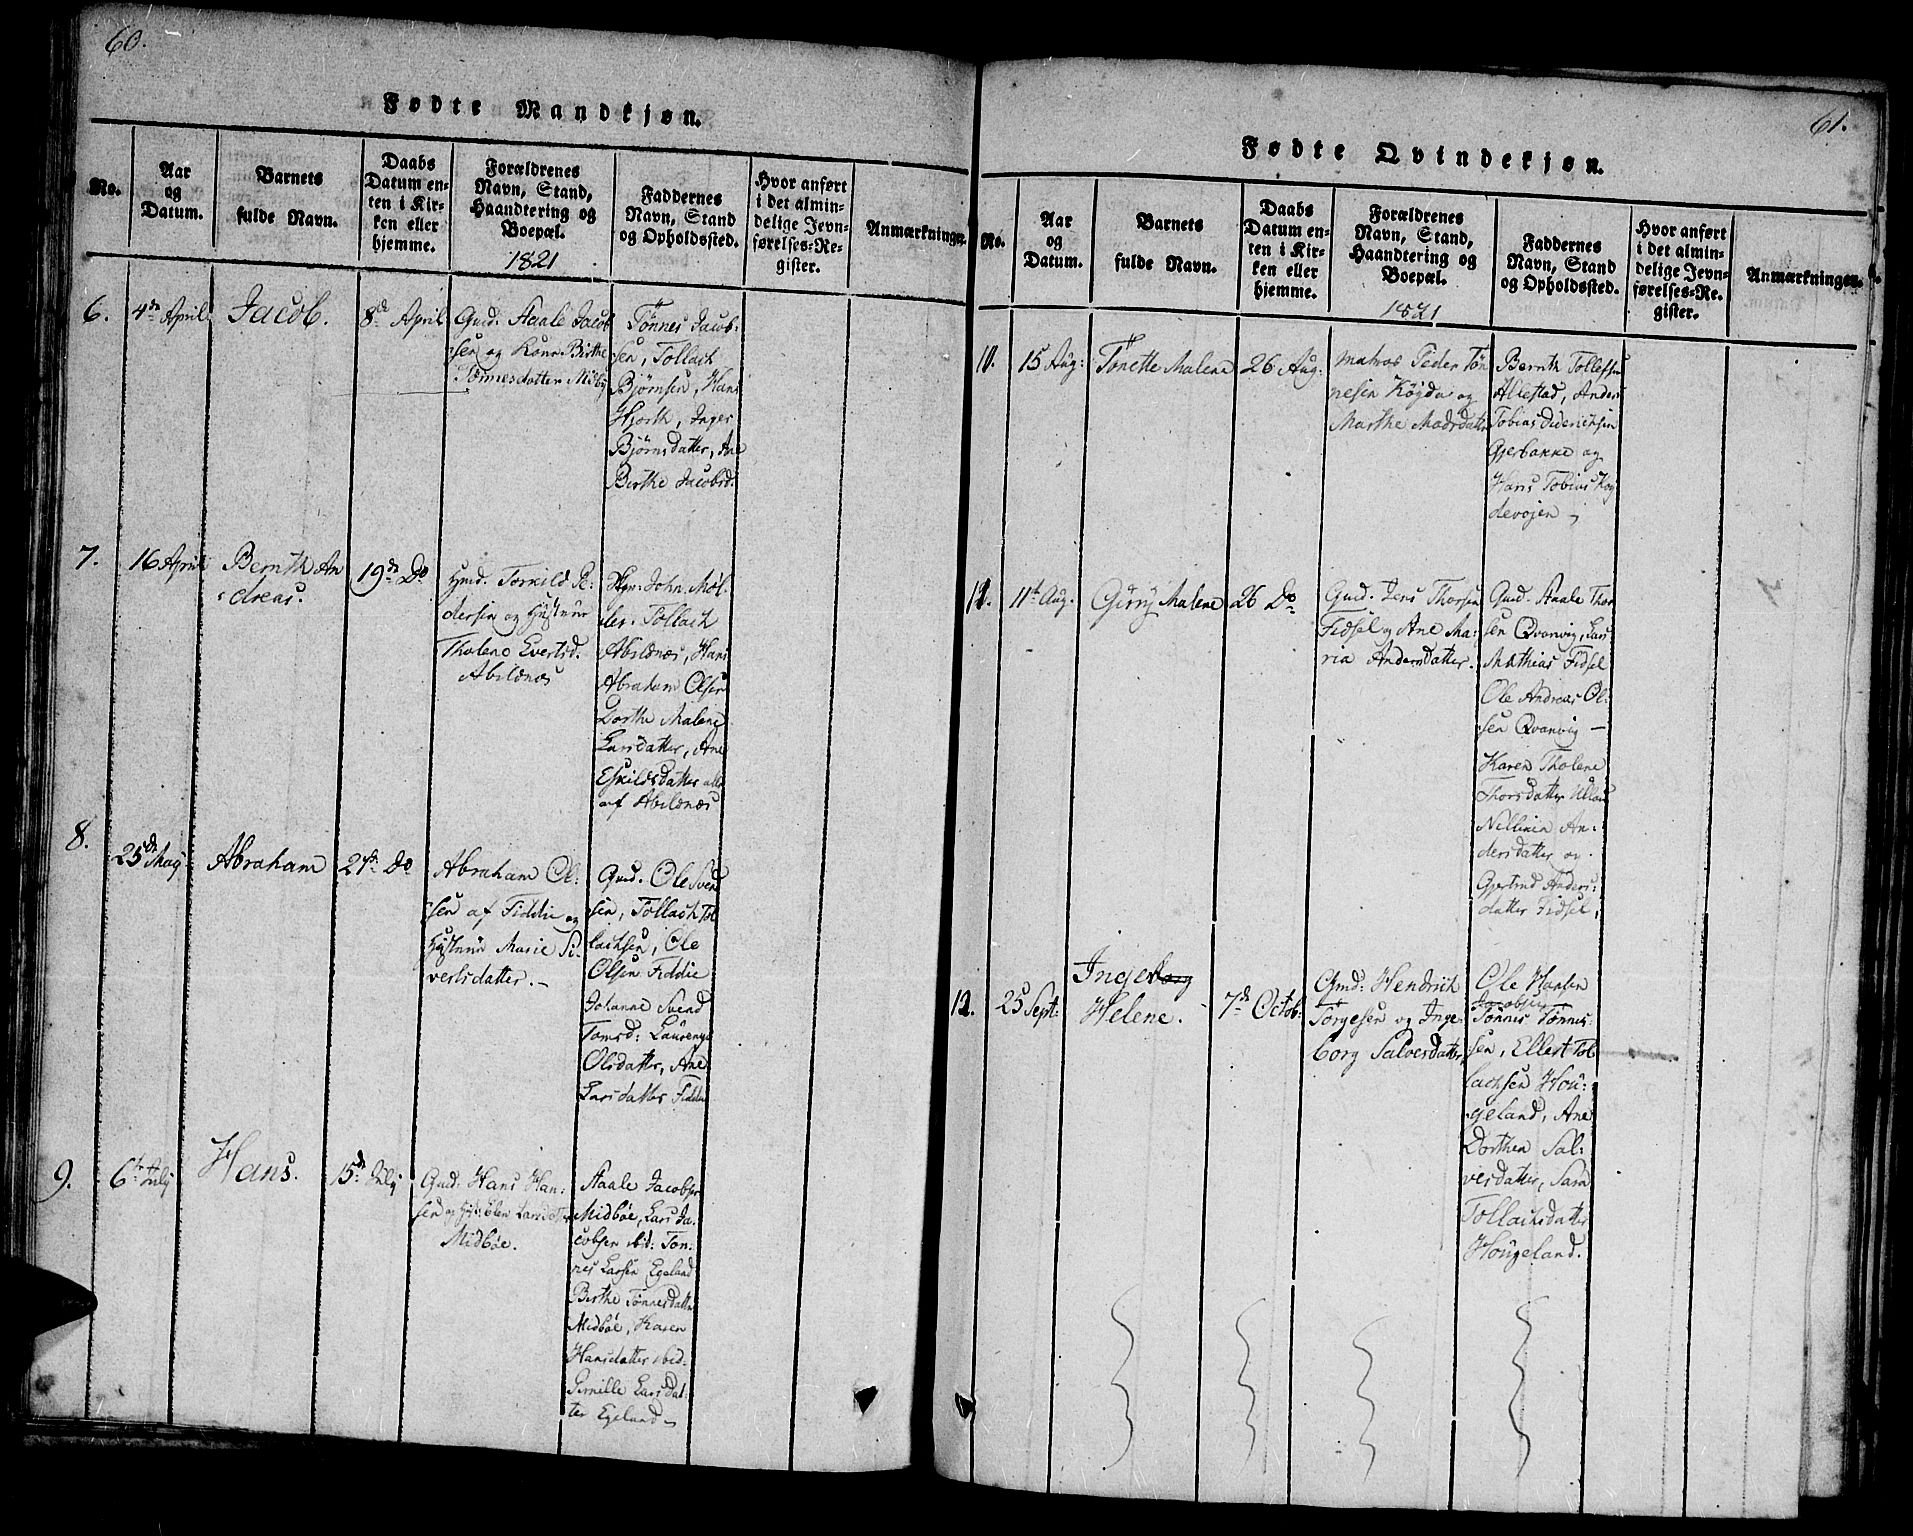 60.
Fødte Mandkjøn.
No.
Aar
og
Datum.
Barnets
fulde Navn.
Daabs
Datum en-
ten i Kir-
ken eller
hjemme.
Forældrenes
Navn, Stand,
Haandtering og
Boepæl.
1821
Faddernes
Navn, Stand
og Opholdssted.
Hvor anført
i det almin-
delige Jevn-
førelses-Re-
gister.
Anmærkninger.
6.
4de April
Jacob.
8de April
Gmd: Aale Jacob
sen og Kone Birthe
Tönnesdatter Midbö
Tönnes Jacob-
sen, Tollach
Bjørnsen, Hans
Hjorth, Inger
Bjørnsdatter, Ane
Birthe Jacobsd.
7.
16 April
Bernth An
dreas.
19de Do
Hmd. Torkild Pe-
dersen og Hystrue
Tholene Evertsd.
Abildnæs
John Möl-
ler, Tollach
Abildnæs, Hans
Abraham Olsen
Dorthe Malene
Larsdatter, Ane
Eskildsdatter alle
af Abildnæs
8.
25de May
Abraham
27de Do
Abraham Ol-
sen af Fiddie og
Hystrue Marie Si-
vertsdatter.-
Gmd. Ole Svend
sen, Tollach Tol
lachsen, Ole
Olsen Fiddie
Johanne Svend
Tomsd: Laurenze
Olsdatter, Ane
Larsdatter Fiddie
9.
6te July
Hans.
15de July
Gmd: Hans Han-
sen og Hst: Elen Larsdatter
Midböe.
Aale Jacobsen
Midböe, Lars Ja-
cobsen ibid: Tön-
nes Larsen Egeland
Birthe Tönnesdatter
Midböe, Karen
Hansdatter ibid-
Pernille Larsdat-
ter Egeland -
61.
Fødte Qvindekjøn.
No.
Aar
og
Datum.
Barnets
fulde Navn.
Daabs
Datum en-
ten i Kir-
ken eller
hjemme.
Forældrenes
Navn, Stand,
Haandtering og
Boepæl.
1821
Faddernes
Navn, Stand
og Opholdssted.
Hvor anført
i det almin-
delige Jevn-
førelses-Re-
gister.
Anmærkninger.
10.
15 Aug:
Tönette Malene
26 Aug:
matros Peder Tön
nesen Köyda og
Marthe Madsdatter
Bernth Tollefsen
Allestad, Anders
Tobias Diderichsen
Gjerbakke og
Hans Tobias Köy
devojen -
11.
11te Aug.
Gurry Malene
26 Do
Gmd. Jens Thorsen
Fidsel og Ane Ma-
ria Andersdatter.
Gmd. Aale Thor
sen Qvanvig, Lars
Mathias Fidsel
Ole Andreas Ol-
sen Qvanvig -
Karen Tholene
Thorsdatter
Nellinea An-
dersdatter og
Gjertrud Anders-
datter Fidsel,
12.
25 Sept:
Ingeborg
Helene.
7de Octob:
Gmd: Hendrich
Torgesen og Inge-
borg Salvesdatter,
Ole Hansen
Jacobsen
Tönnes Tönnes-
sen, Ellert Tol
lachsen Hou-
geland, Ane
Dorthea Sal-
vesdatter, Sara
Tollachsdatter
Hougeland.